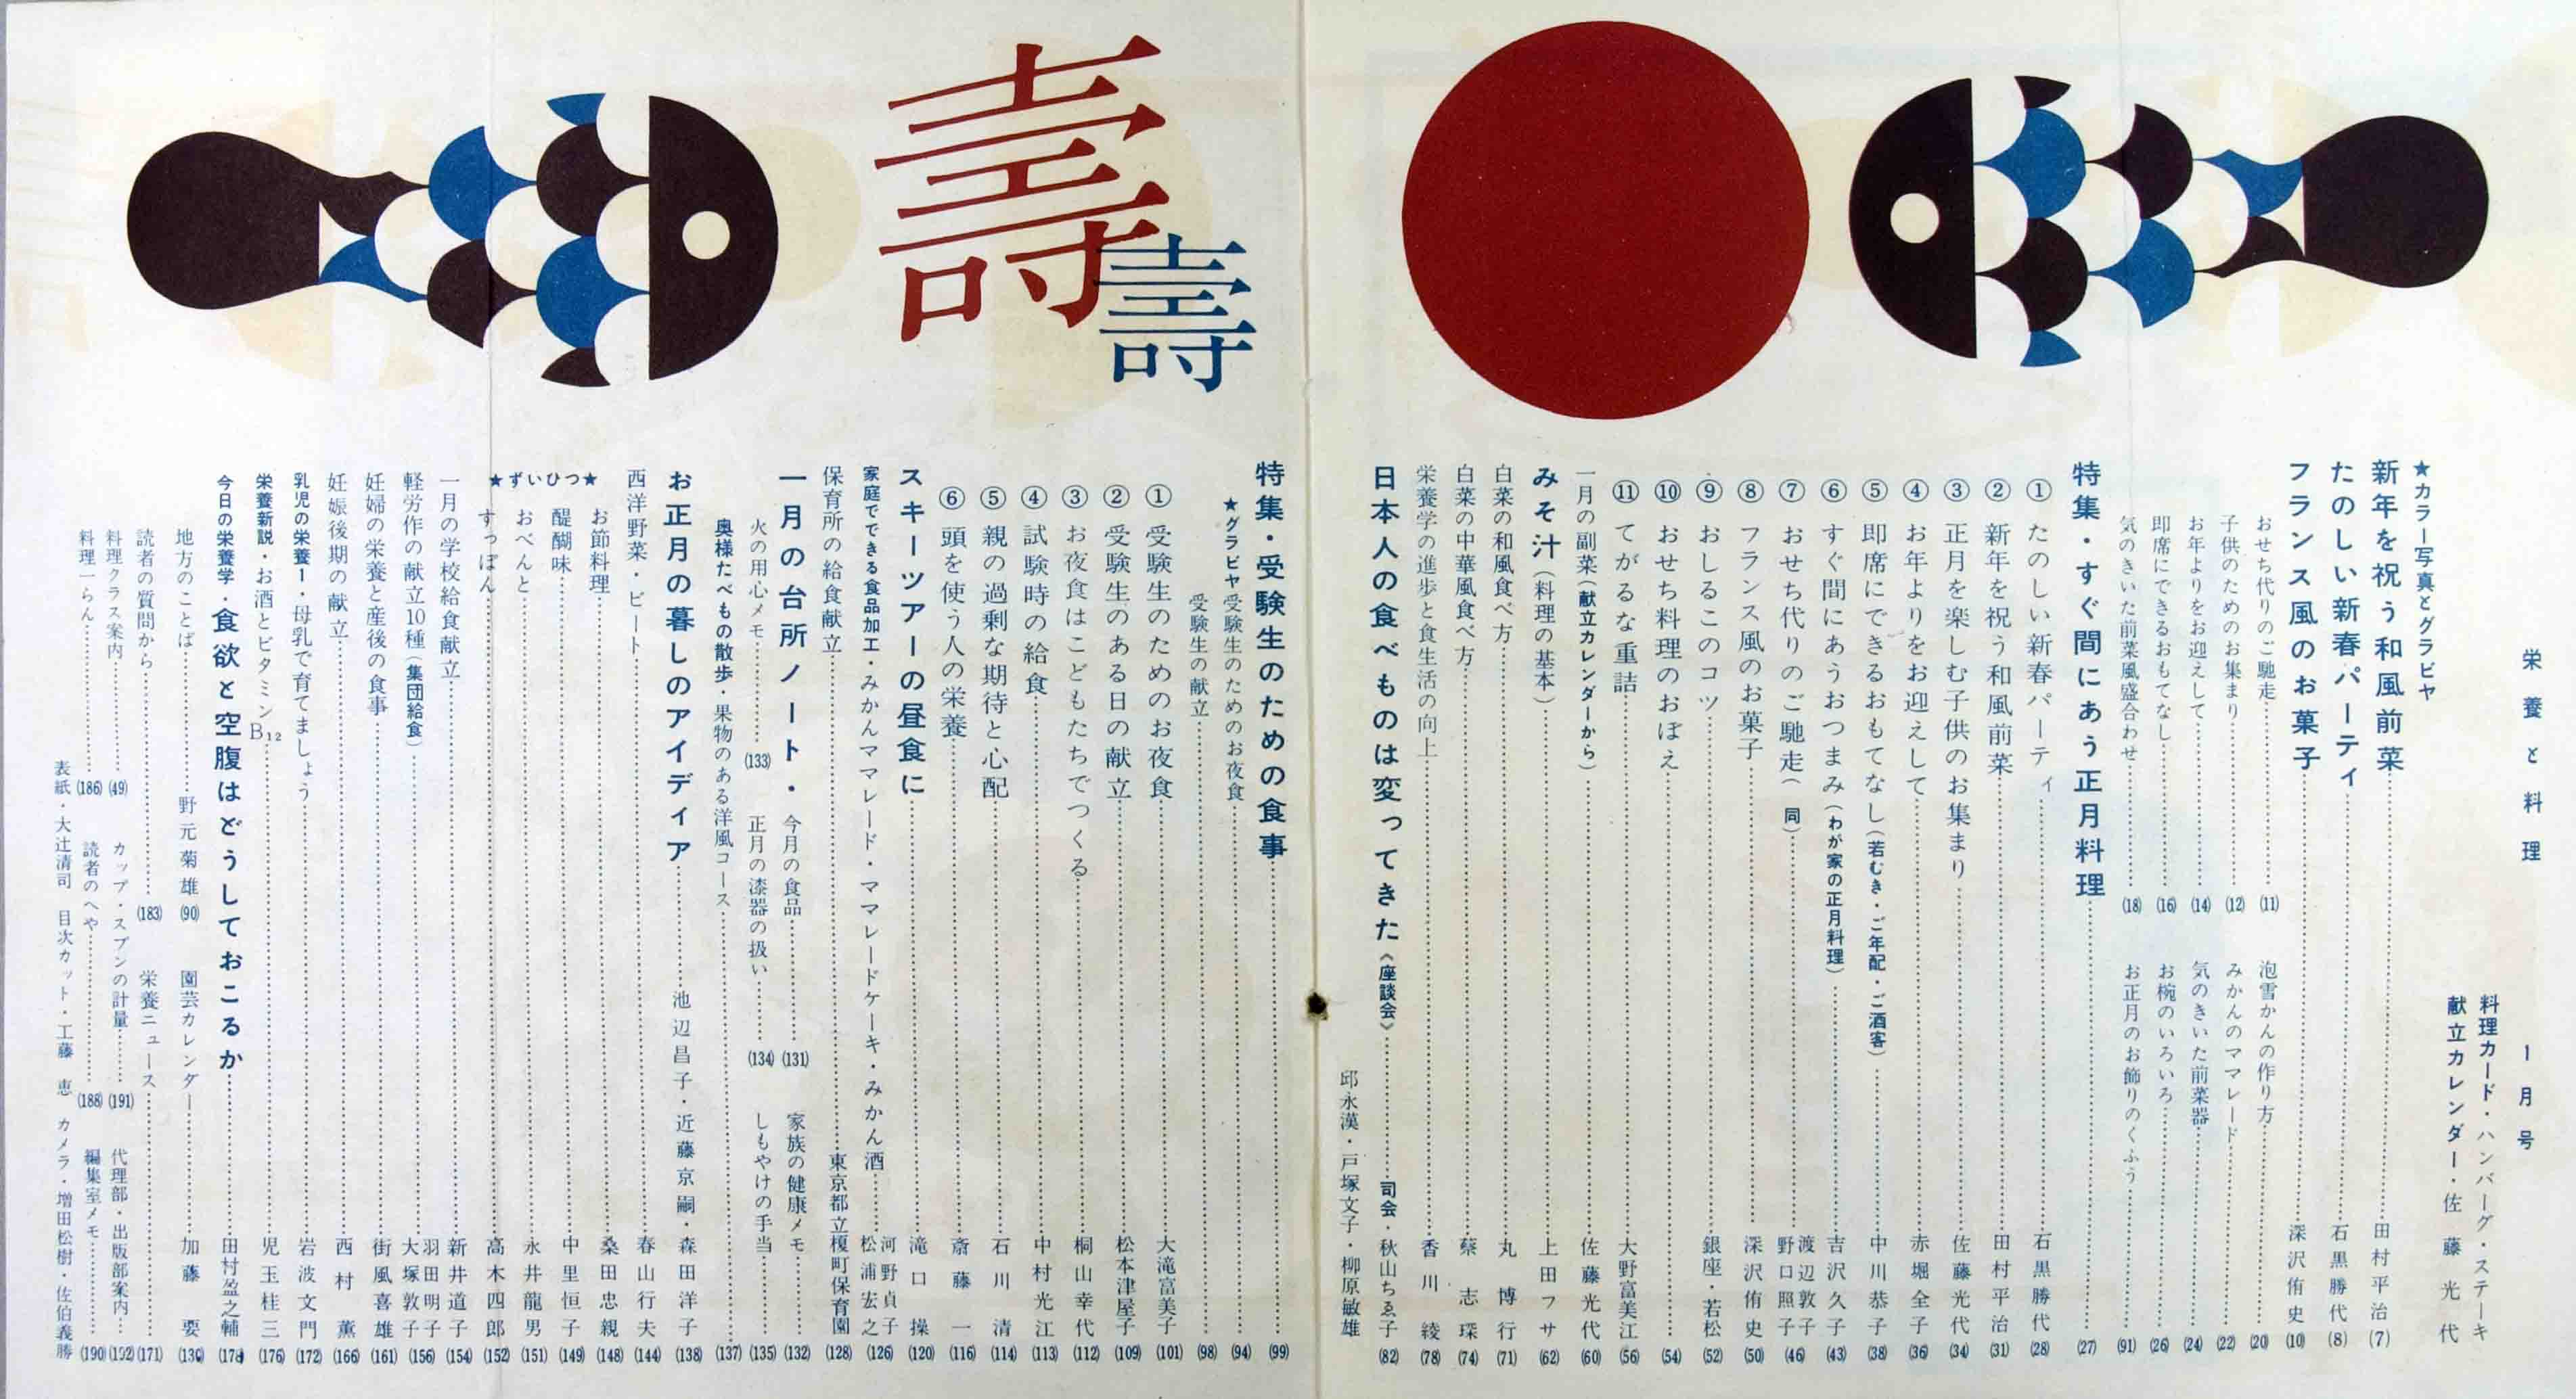 栄養と料理　1月号
料理カード・ハンバーグ・ステーキ
献立カレンダー・佐藤光代
★カラー写真とグラビヤ
新年を祝う和風前菜……田村平治(7)
たのしい新春パーティ……石黒勝代(8)
フランス風のお菓子……深沢侑史(10)
おせち代りのご馳走……(11)　泡雪かんの作り方……(20)
子供のためのお集まり……(12)　みかんのママレード……(22)
お年よりをお迎えして……(14)　気のきいた前菜器……(24)
即席にできるおもてなし……(16)　お椀のいろいろ……(26)
気のきいた前菜風盛合わせ……(18)　お正月のお飾りのくふう……(91)
特集・すぐ間にあう正月料理……(27)
①たのしい新春パーティ……石黒勝代(28)
②新年を祝う和風前菜……田村平治(31)
③正月を楽しむ子供のお集まり……佐藤光代(34)
④お年よりをお迎えして……赤堀全子(36)
⑤即席にできるおもてなし(若むき・ご年配・ご酒客)……中川恭子(38)
⑥すぐ間にあうおつまみ(わが家の正月料理)……吉沢久子(43)
⑦おせち代りのご馳走(同)……渡辺敦子 野口照子(46)
⑧フランス風のお菓子……深沢侑史(50)
⑨おしるこのコツ……銀座・若松(52)
⑩おせち料理のおぼえ……(54)
⑪てがるな重詰……大野富美江(56)
一月の副菜(献立カレンダーから)……佐藤光代(60)
みそ汁(料理の基本)……上田フサ(62)
白菜の和風食べ方……丸博行(71)
白菜の中華風食べ方……蔡志琛(74)
栄養学の進歩と食生活の向上……香川綾(78)
日本人の食べものは変ってきた《座談会》……司会・秋山ちゑ子(82)
邱永漢・戸塚文子・柳原敏雄
壽
壽
特集・受験生のための食事……(99)
★グラビヤ 受験生のためのお夜食……(94)
受験生の献立……(98)
①受験生のためのお夜食……大滝富美子(101)
②受験生のある日の献立……松本津屋子(109)
③お夜食はこどもたちでつくる……桐山幸代(112)
④試験時の給食……中村光江(113)
⑤親の過剰な期待と心配……石川清(114)
⑥頭を使う人の栄養……斎藤一(116)
スキーツアーの昼食に……滝口操(120)
家庭でできる食品加工・みかんママレード・ママレードケーキ・みかん酒……河野貞子 松浦宏之(126)
保育所の給食献立……東京都立榎町保育園(128)
一月の台所ノート・今月の食品……(131)　家族の健康メモ……(132)
火の用心メモ……(133)　正月の漆器の扱い……(134)　しもやけの手当……(135)
奥様たべもの散歩・果物のある洋風コース……(137)
お正月の暮しのアイディア……池辺昌子・近藤京嗣・森田洋子(138)
西洋野菜・ビート……春山行夫(144)
★ずいひつ★
お節料理……桑田忠親(148)
醍醐味……中里恒子(149)
おべんと……永井龍男(151)
すっぽん……高木四郎(152)
一月の学校給食献立……新井道子(154)
軽労作の献立10種(集団給食)……羽田明子 大塚敦子(156)
妊婦の栄養と産後の食事……街風喜雄(161)
妊娠後期の献立……西村薫(166)
乳児の栄養1・母乳で育てましょう……岩波文門(172)
栄養新説・お酒とビタミンB₁₂……児玉桂三(176)
今日の栄養学・食欲と空腹はどうしておこるか……田村盈之輔
地方のことば……野元菊雄(90)　園芸カレンダー……加藤要
読者の質問から……(183)　栄養ニュース……(171)
料理クラス案内……(49)　カップ・スプンの計量……(191)　代理部・出版部案内……(192)
料理一らん……(186)　読者のへや……(188)　編集室メモ……(190)
表紙・大辻清司　目次カット・工藤恵　カメラ・増田松樹・佐伯義勝